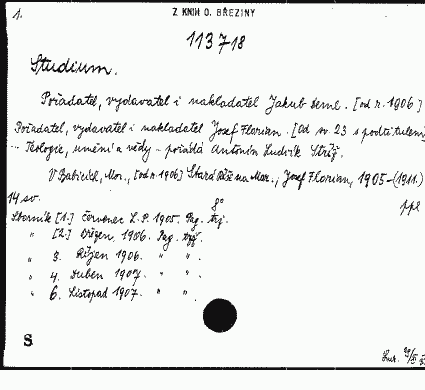 1.
Z KNIH O. BŘEZINY
113718
Studium.
Pořadatel, vydavatel i nakladatel Jakub Deml. [od r. 1906]
Pořadatel, vydavatel i nakladatel Josef Florian. [Od sv. 23 s podtitulem]
... Teologie, umění a vědy - pořádá Antonín Ludvík Stříž.
V Babicích, Mor., [od r. 1906] Stará Říše na Mor., Josef Florian, 1905-(1911.)
14 sv. 8°
ppl
Sborník [1.] Červenec L.P. 1905. Pag.
" [2.] Březen, 1906. Pag.
" 3. Říjen 1906. " "
" 4. Duben 1907. " "
" 6. Listopad 1907. " "
S